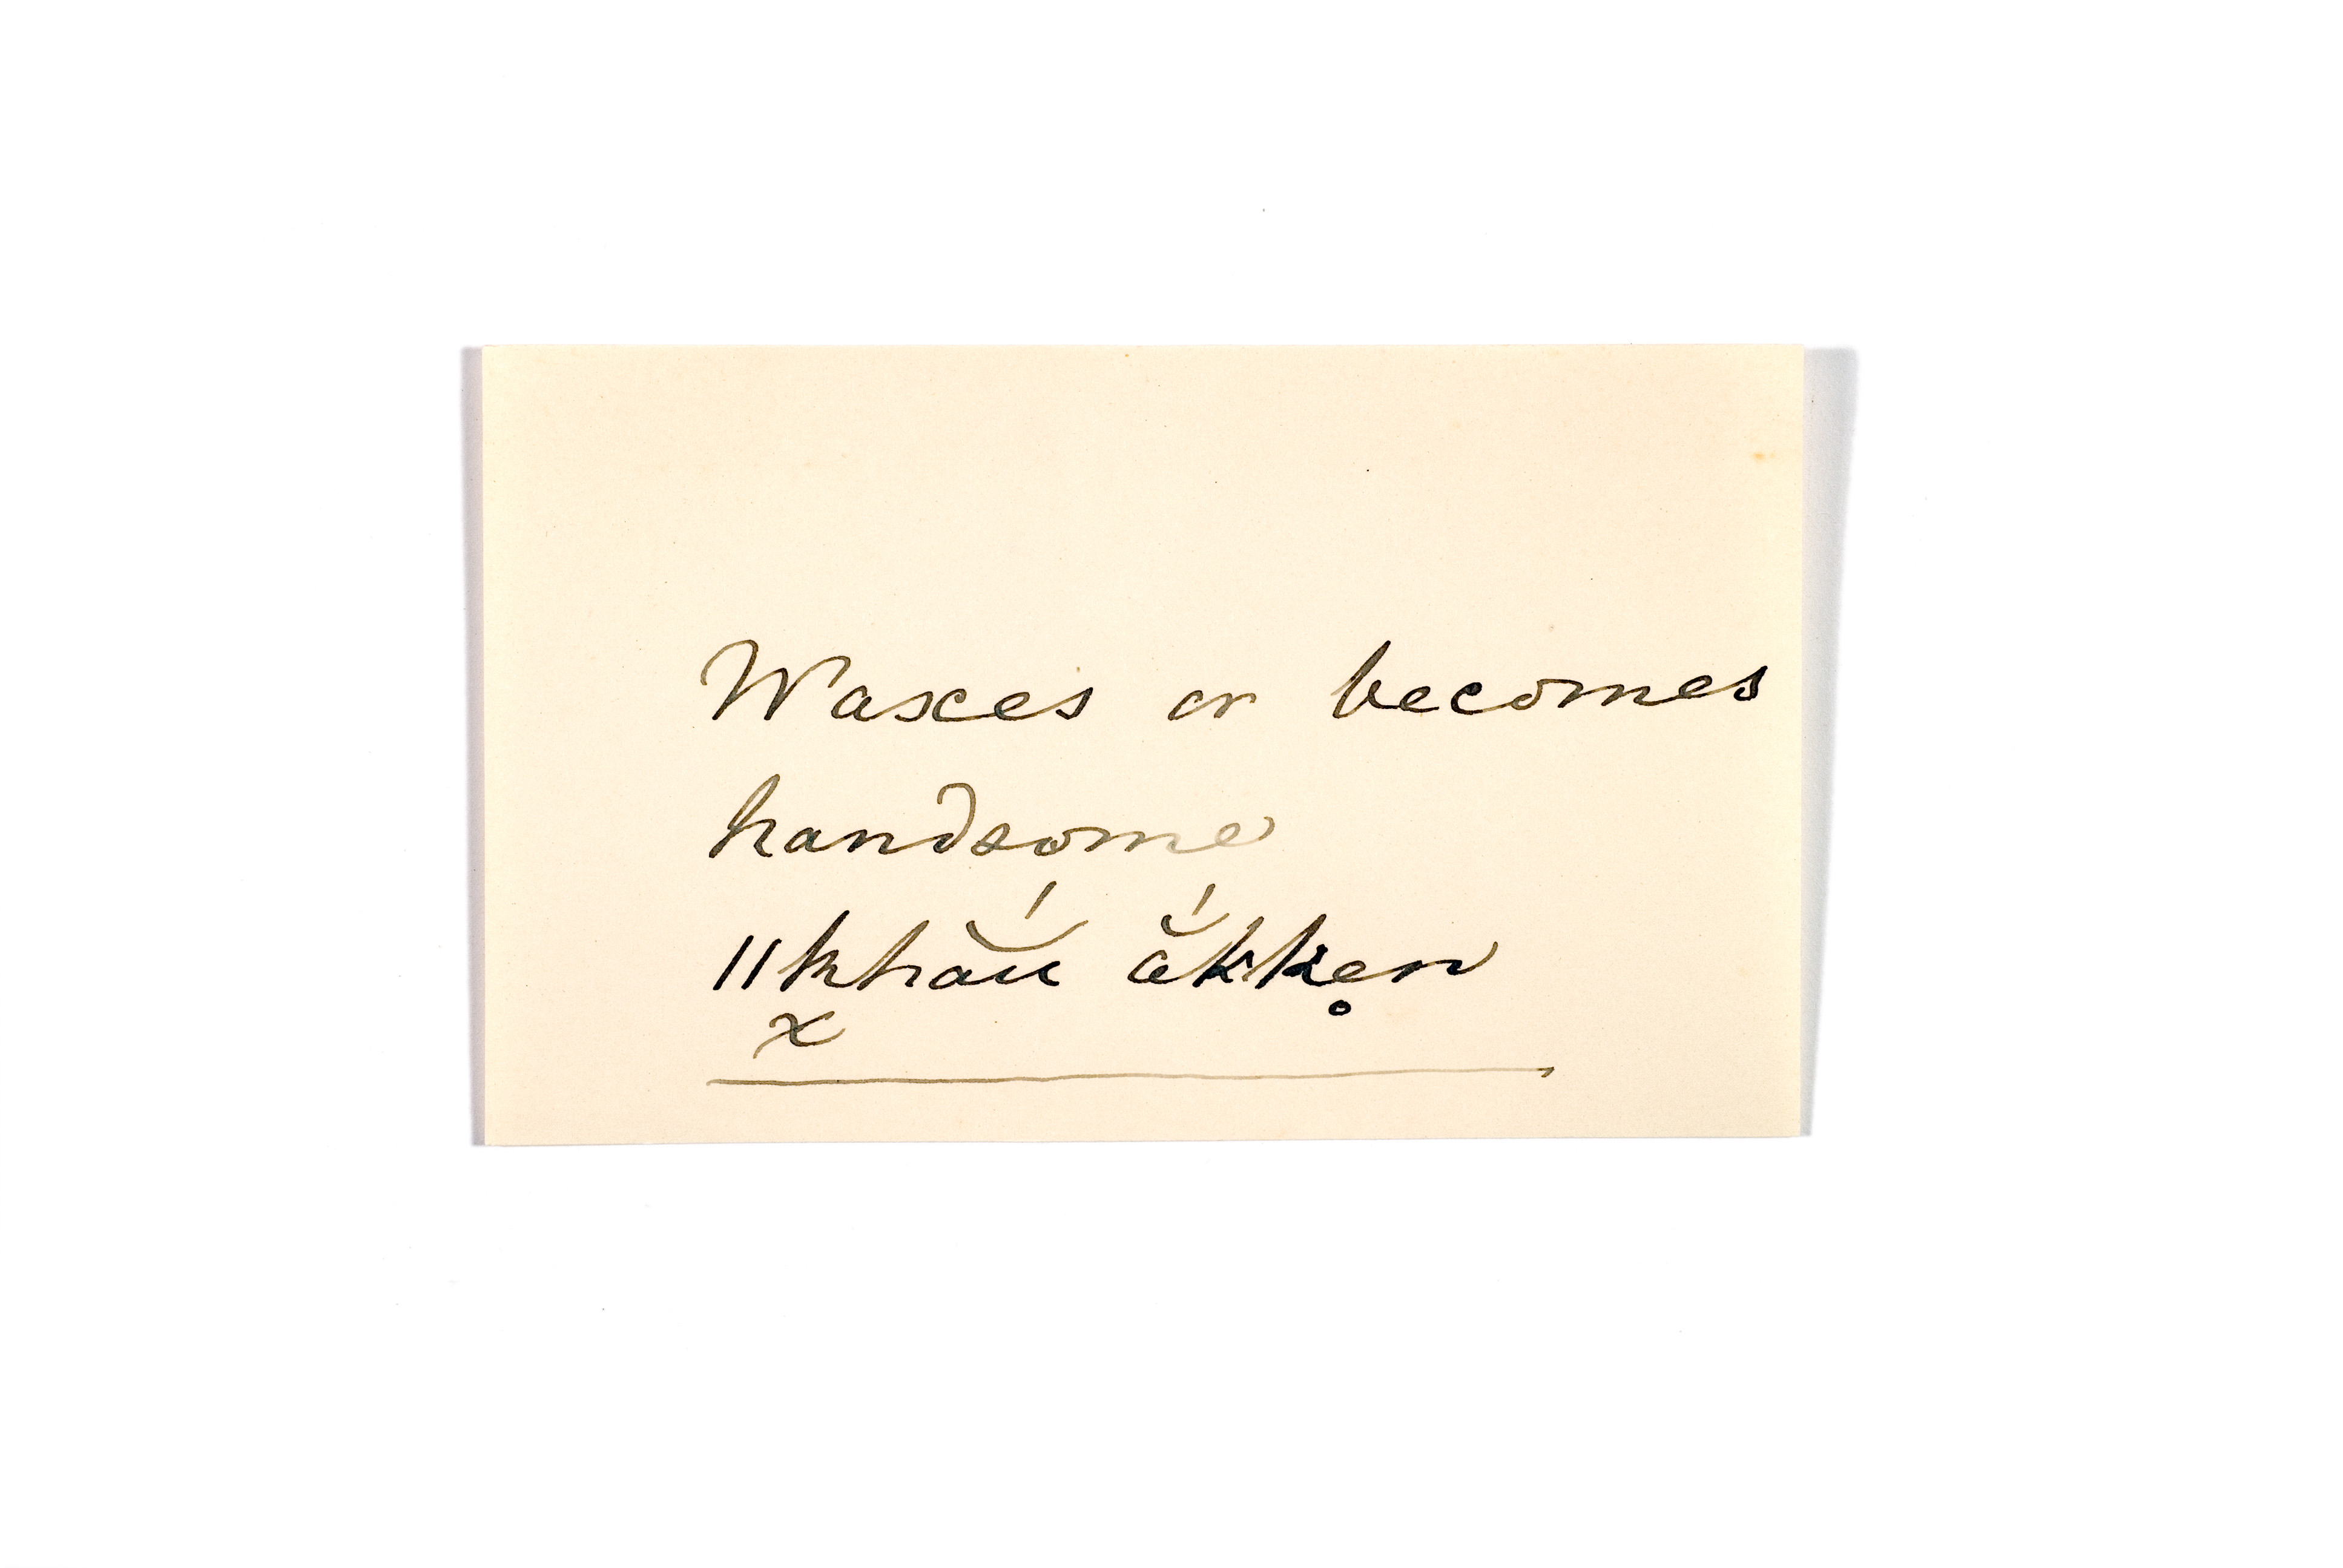 Waxes or becomes
handsome
||kháŭ̯ ắkke̥n
x